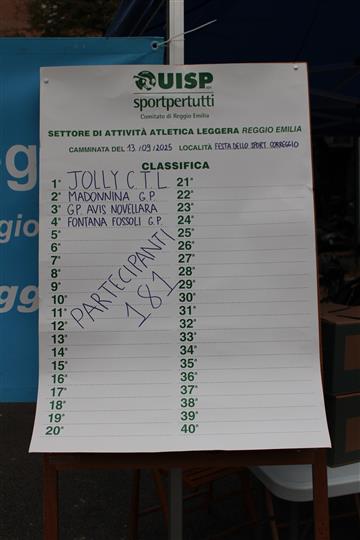 UISP
sportpertutti
Comitato di Reggio Emilia
SETTORE DI ATTIVITÀ ATLETICA LEGGERA REGGIO EMILIA
CAMMINATA DEL 13/09/2025 LOCALITÀ FESTA DELLO SPORT CORREGGIO
CLASSIFICA
1° JOLLY C.T.L
2° MADONNINA G.P
3° G.P AVIS NOVELLARA
4° FONTANA FOSSOLI G.P.
5°
6°
7°
8°
9°
10°
11°
12°
13°
14°
15°
16°
17°
18°
19°
20°
PARTECIPANTI
181
21°
22°
23°
24°
25°
26°
27°
28°
29°
30°
31°
32°
33°
34°
35°
36°
37°
38°
39°
40°